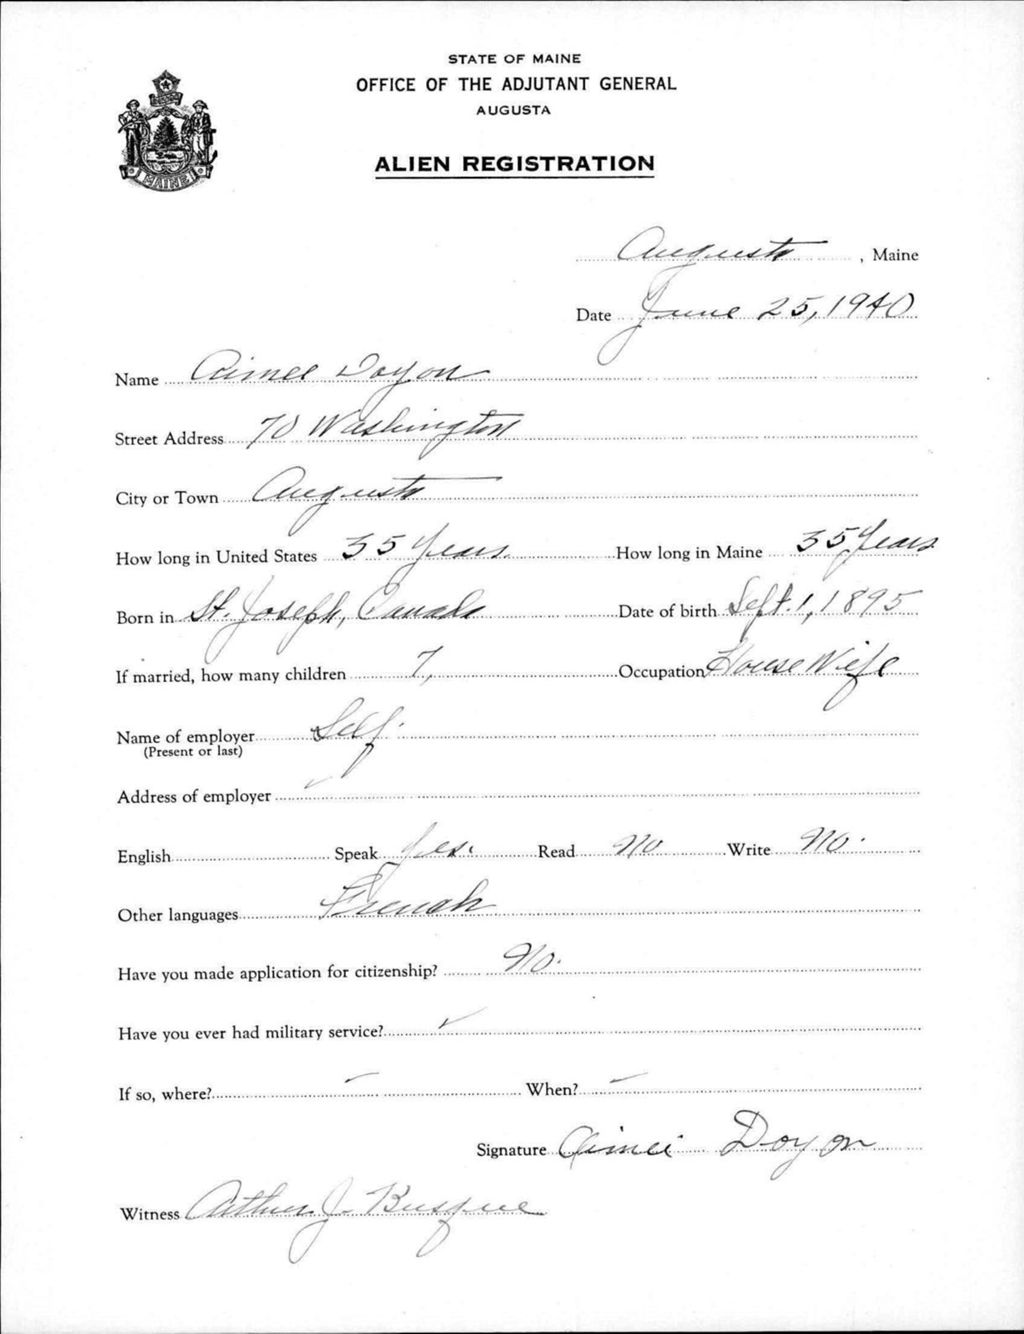 STATE OF MAINE
OFFICE OF THE ADJUTANT GENERAL
AUGUSTA
ALIEN REGISTRATION
MAINE
Augusta, Maine
Date June 25, 1940
Name Aimee Doyon
Street Address 70 Washington
City or Town Augusta
How long in United States 35 Years How long in Maine 35 Years
Born in St. Joseph, Canada Date of birth Sept. 1, 1895
If married, how many children 7, Occupation House Wife
Name of employer Self.
(Present or last)
Address of employer
English Speak Yes. Read No Write No.
Other languages French
Have you made application for citizenship? No.
Have you ever had military service?
If so, where? — When? —
Signature Aimei Doyon
Witness Arthur J. Busque